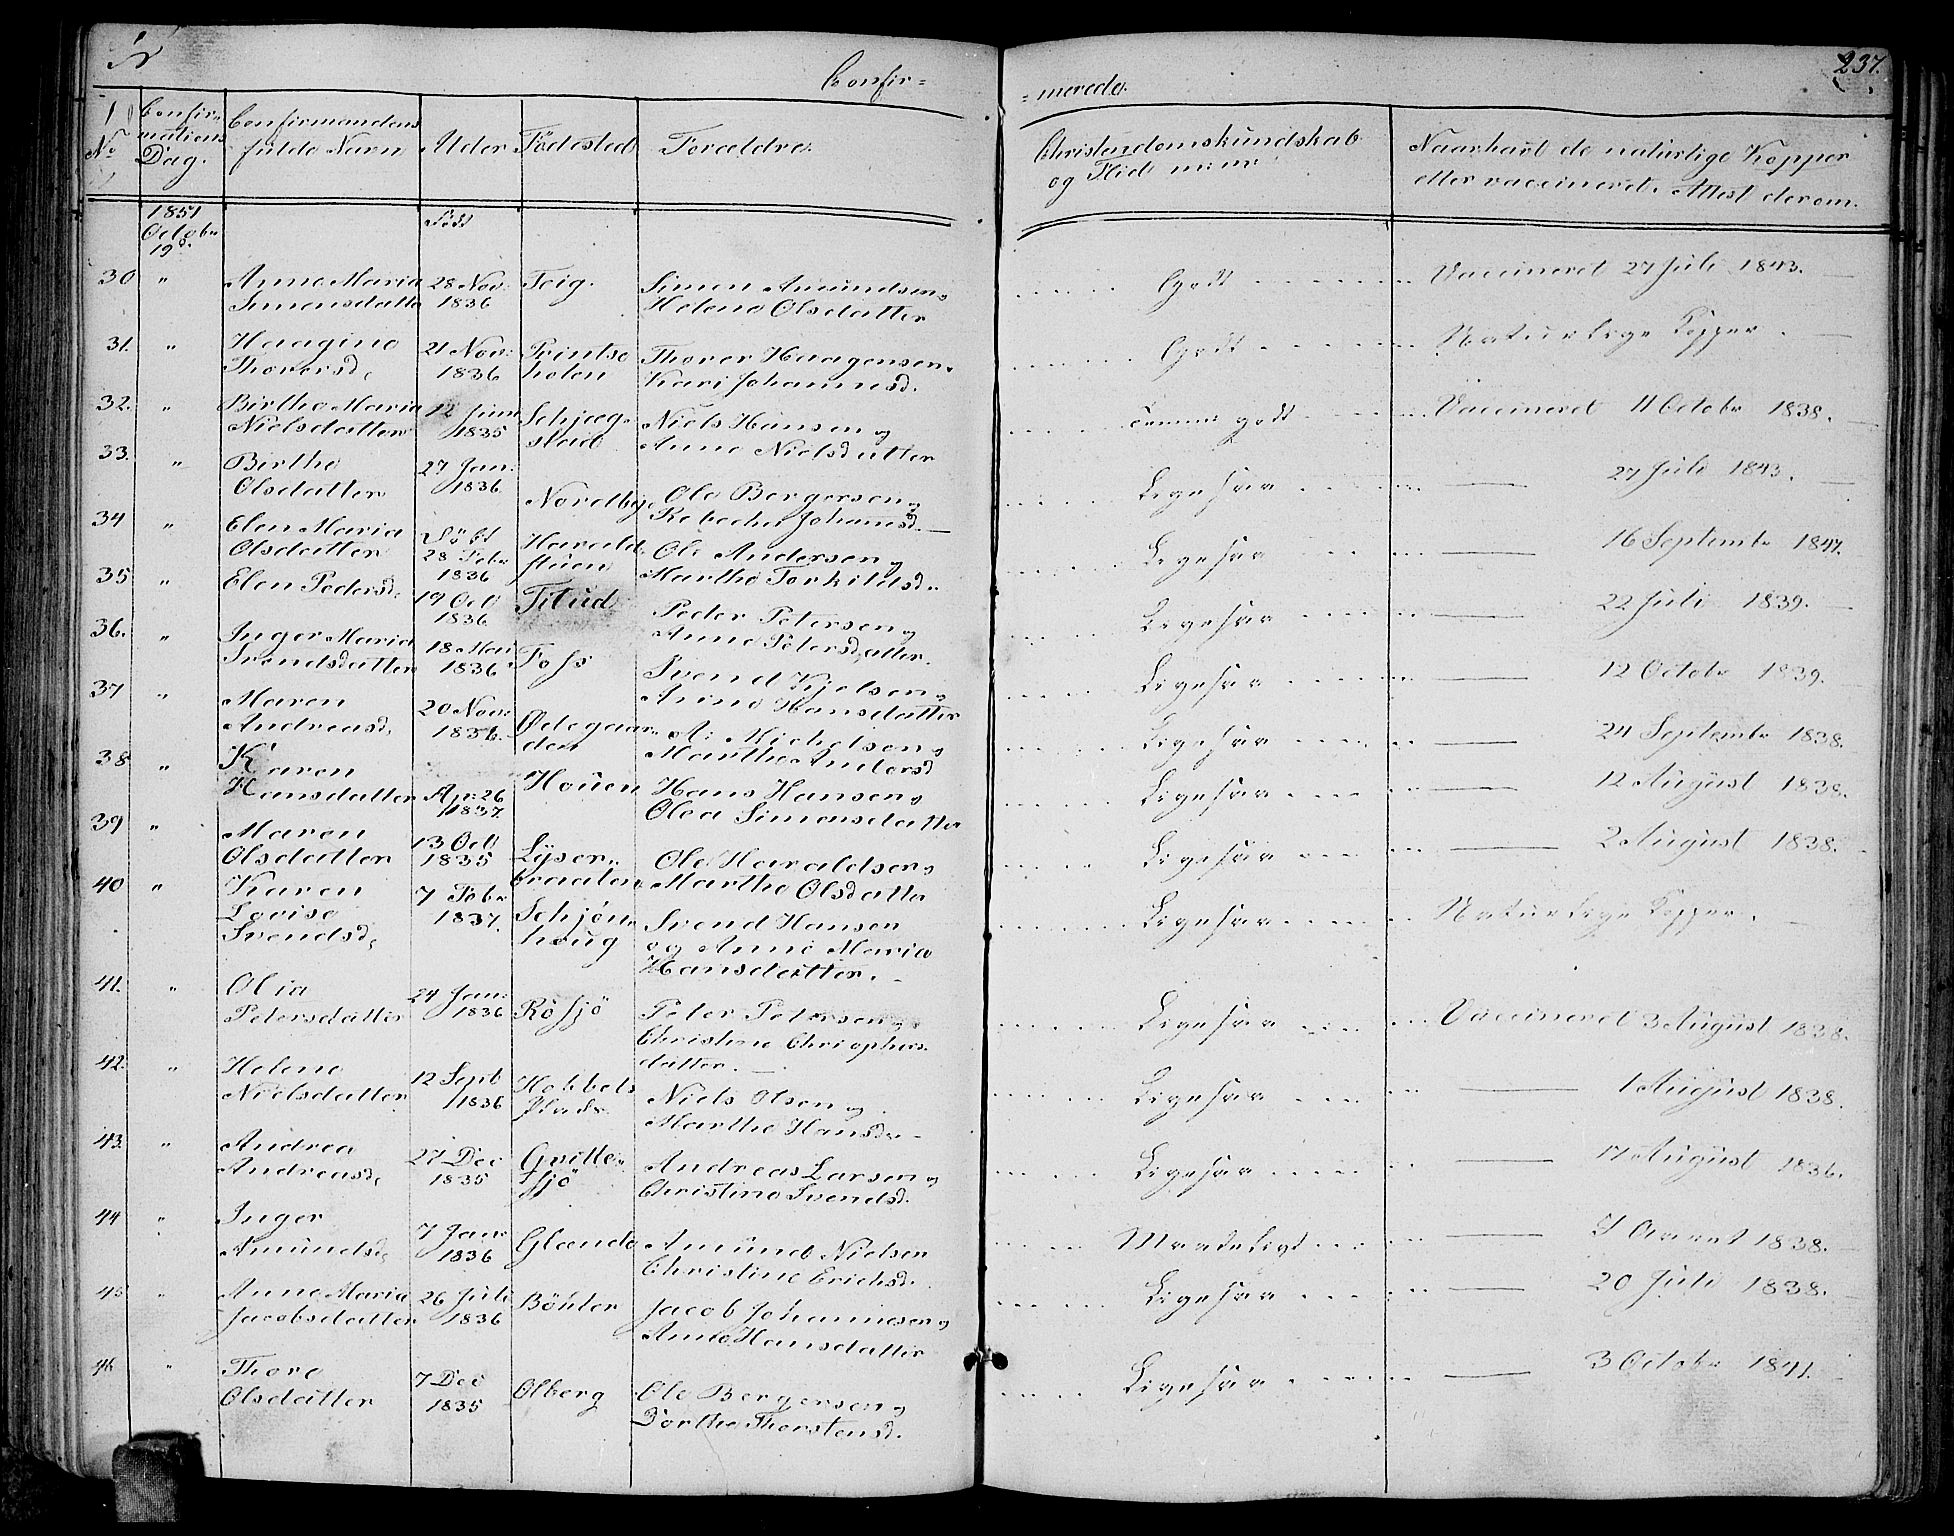 Confir-
-merede.
237.
No
Confirmations Dag.
Confirmandens fulde Navn
Alder
Fødested
Forældre.
Christendomskundskab og Flid m: m:
Naar havt de naturlige Kopper eller vaccineret. Attest derom.
1851 Octobr 19d.
Født
30 " Anne Maria Simensdatter 28 Nov: 1836 Teig. Simen Amundsen og Helene Olsdatter Godt Vaccineret 27 Juli 1843.
31. " Haagine Thorersd. 21 Nov: 1836 Printseholen Thorer Haagensen Kari Johannesd. Godt Naturlige Kopper.
32. " Birthe Maria Nielsdatter 12 Juni 1835 Schjægsleid Niels Hansen og Anne Nielsdatter Temmel godt Vaccineret 11 Octobr 1838.
33. " Birthe Olsdatter 27 Jan: 1836 Nordbye Ole Bergersen og Rebecha Johansd. Ligesaa 27 Juli 1843.
34 " Elen Maria Olsdatter Født 28 Febr 1836 Haraldstuen Ole Andersen og Marthe Torkildsd. Ligesaa 16 Septembr 1847.
35 " Elen Pedersd. 19 Oct 1836 Titud Peder Petersen og Anne Petersdatter. Ligesaa 22 Juli 1839.
36. " Inger Maria Svendsdatter 18 Mai 1836 Foss Svend Kjelsen og Anne Hansdatter Ligesaa 12 Octobr 1839.
37 " Maren Andreasd. 20 Nov: 1836. Ødegaarden A: Michelsen og Marthe Andersd Ligesaa 24 Septembr 1838.
38 " Karen Hansdatter Apr: 26 1837. Houen Hans Hansen og Olea Simensdatter Ligesaa 12 August 1838.
39 " Maren Olsdatter 13 Oct 1835 Lyserbraaten Ole Haraldsen og Marthe Olsdatter Ligesaa 2 August 1838.
40 " Karen Lovise Svendsd. 7 Febr 1837. Schjønhoug Svend Hansen og Anne Maria Hansdatter. Ligesaa Naturlige Kopper.
41. " Olia Petersdatter 24 Jan: 1836 Røsjø Peter Petersen og Christine Christophersdatter. Ligesaa Vaccineret 3 August 1838.
42. " Helene Nielsdatter 12 Sept 1836 Hobbels Plads. Niels Olsen og Marthe Hansd. Ligesaa 1 August 1838.
43. " Andrea Andreasd. 27 Dec 1835 Gnittesjö Andreas Larsen og Christine Svendsd. Ligesaa 17 August 1836.
44 " Inger Amundsd. 7 Jan: 1836 Glænde Amund Nielsen Christine Erichsd. Maadeligt 1838.
45 " Anne Maria Jacobsdatter 26 Juli 1836 Böhler Jacob Johannesen og Anne Hansdatter Ligesaa 20 Juli 1838.
46 " Thore Olsdatter 7 Dec 1835 Olberg Ole Bergersen og Dorthe Thorstensd. Ligesaa 3 Octobr 1841.